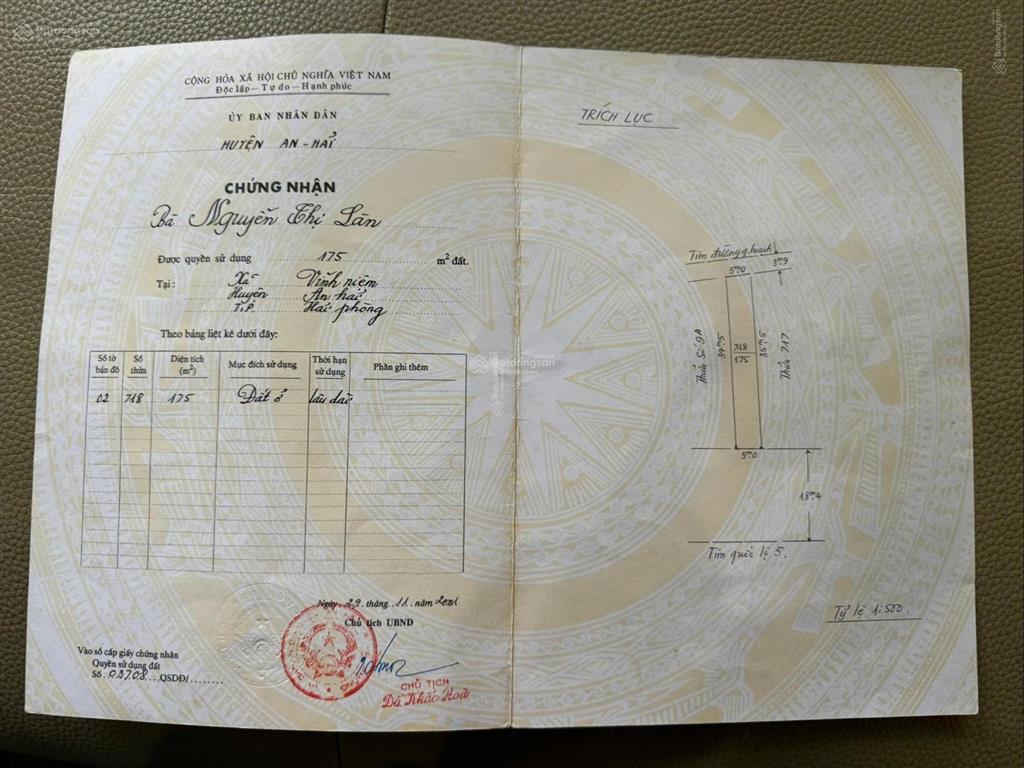 CỘNG HÒA XÃ HỘI CHỦ NGHĨA VIỆT NAM
Độc lập — Tự do — Hạnh phúc
ỦY BAN NHÂN DÂN
HUYỆN AN - HẢI
CHỨNG NHẬN
Bà Nguyễn Thị Lân
Được quyền sử dụng 175 m² đất.
Tại: Xã Vĩnh niệm
Huyện An hải
T.P Hải phòng
Theo bảng liệt kê dưới đây:
Số tờ bản đồ Số thửa Diện tích (m²) Mục đích sử dụng Thời hạn sử dụng Phần ghi thêm
02 718 175 Đất ở lâu dài
Ngày 29 tháng 11 năm 2001
Chủ tịch UBND
CHỦ TỊCH
Vào sổ cấp giấy chứng nhận
Quyền sử dụng đất
Số QSDĐ/
TRÍCH LỤC
Tim đường q.hoạch
5m0
3m9
Thửa số 9A
34m5
718
175
35m5
Thửa 717
5m0
18m4
Tim quốc lộ 5.
Tỷ lệ 1:500.
Batdongsan
Batdongsan
Batdongsan